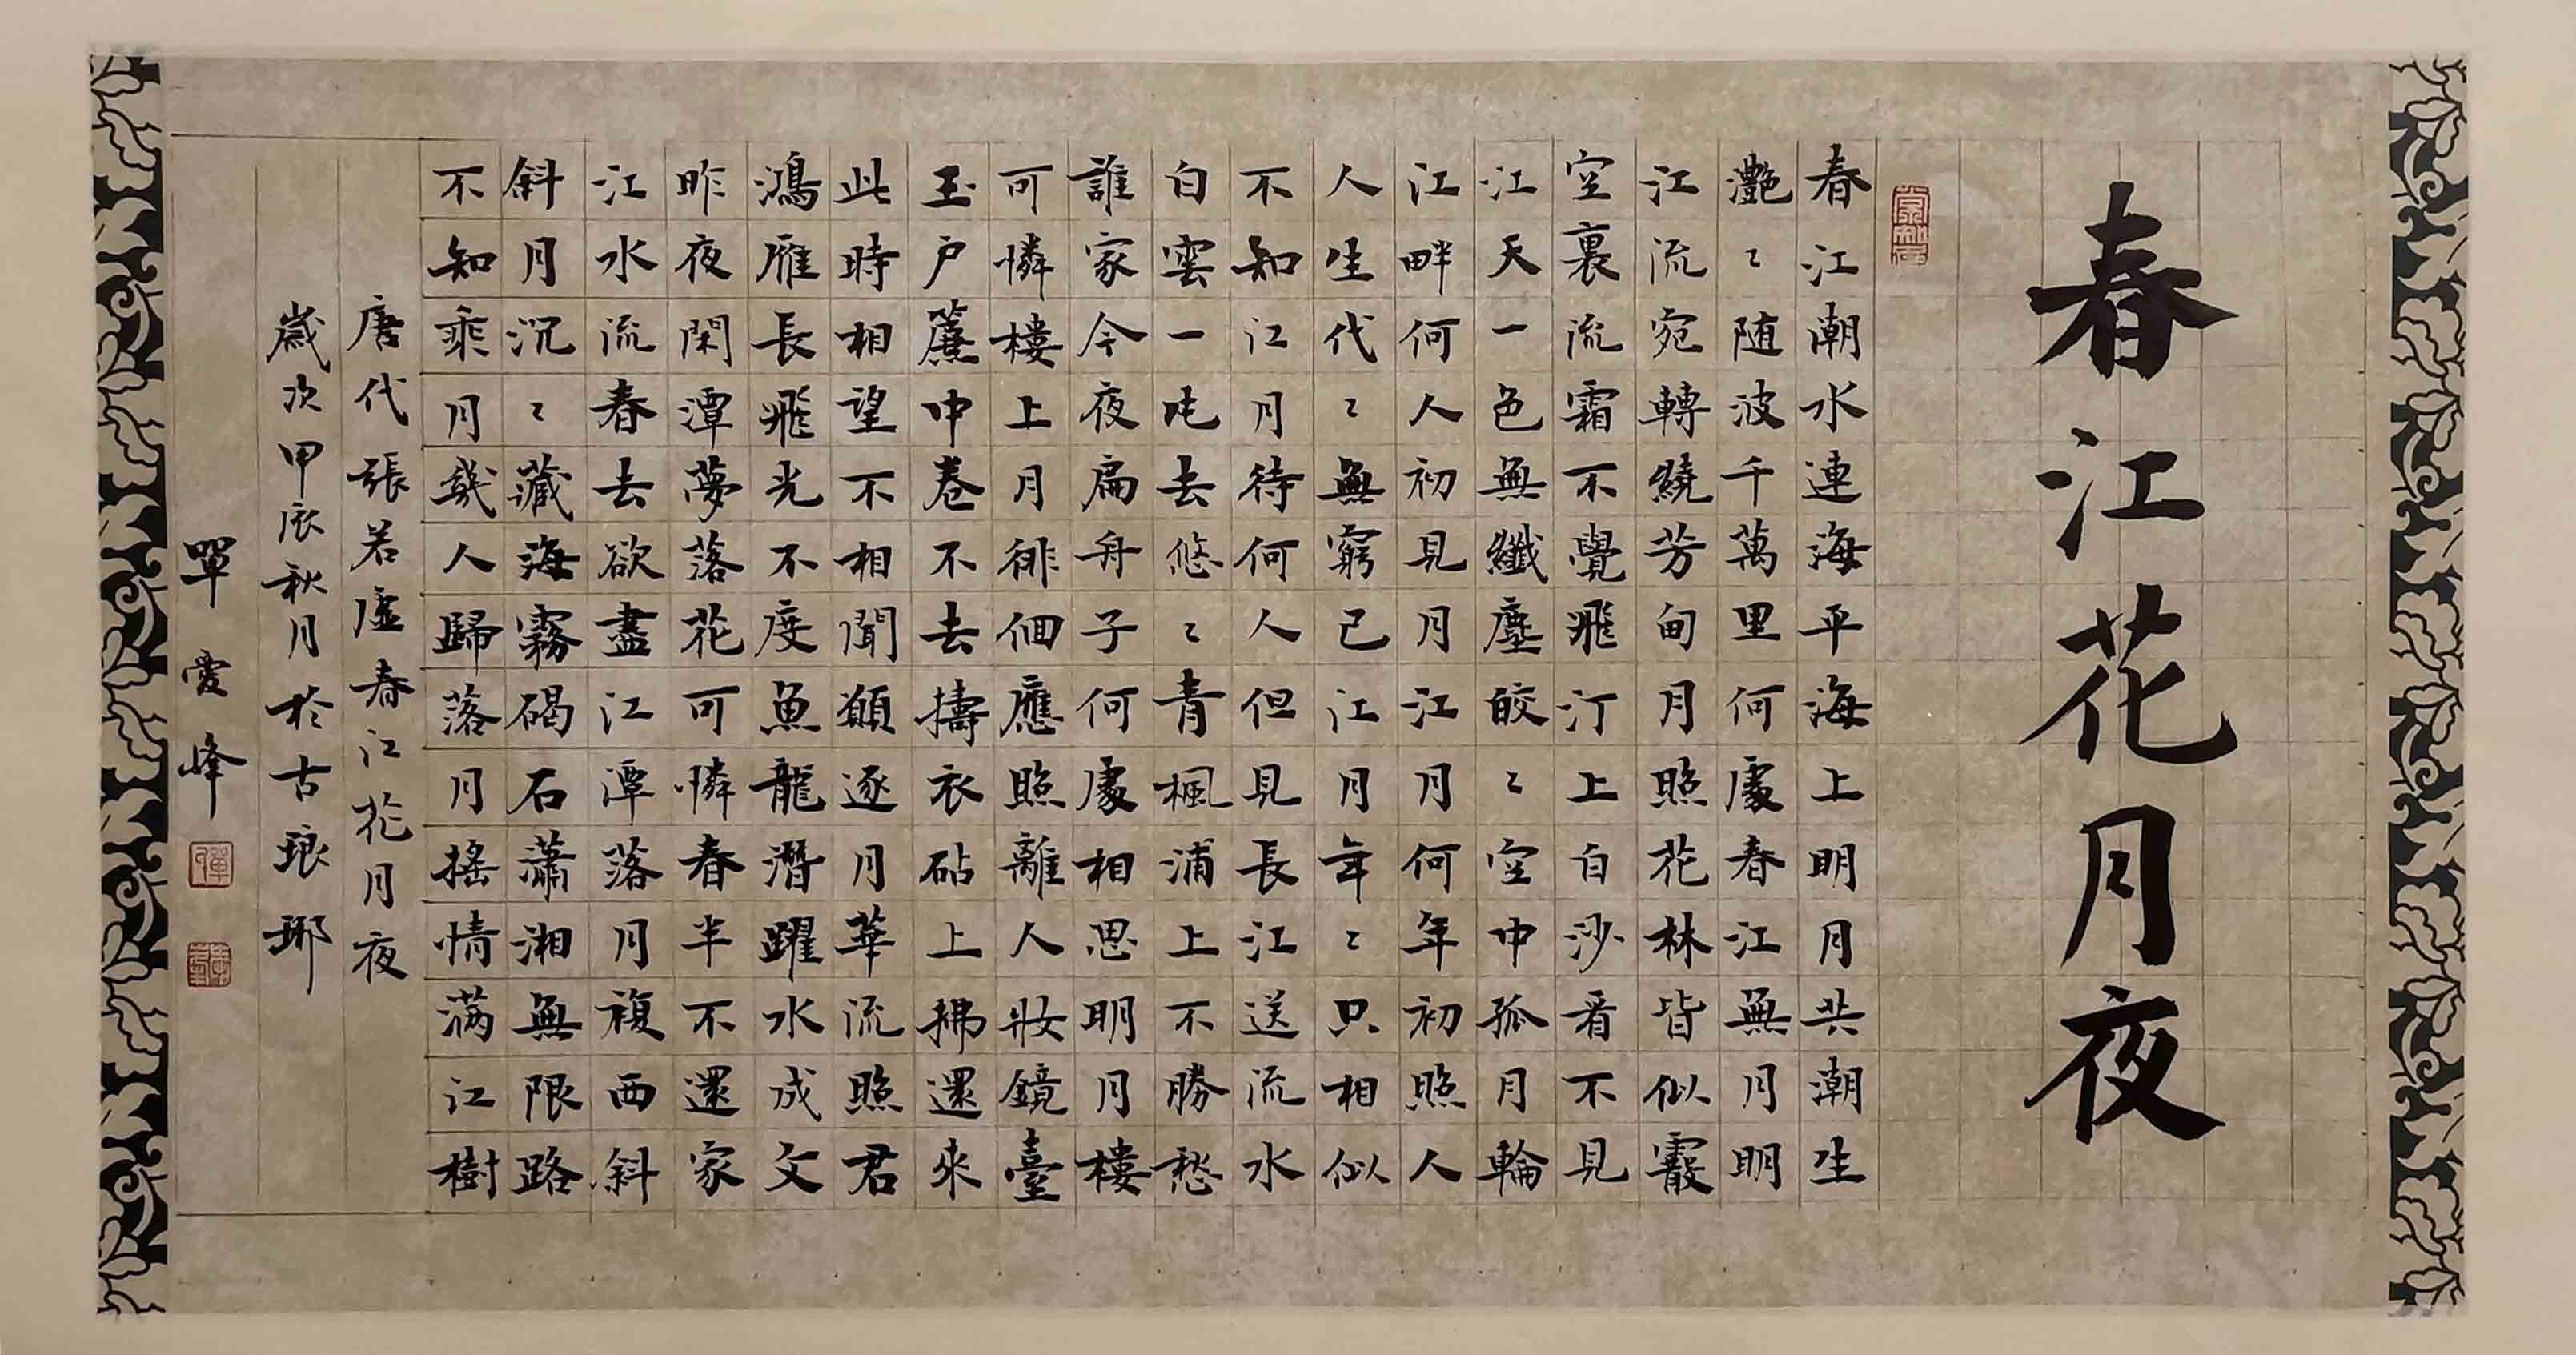 春江花月夜
春江潮水連海平海上明月共潮生
灧〻随波千萬里何處春江無月明
江流宛轉繞芳甸月照花林皆似霰
空裏流霜不覺飛汀上白沙看不見
江天一色無纖塵皎〻空中孤月輪
江畔何人初見月江月何年初照人
人生代〻無窮已江月年〻只相似
不知江月待何人但見長江送流水
白雲一片去悠〻青楓浦上不勝愁
誰家今夜扁舟子何處相思明月樓
可憐樓上月徘徊應照離人妝鏡臺
玉户簾中卷不去擣衣砧上拂還來
此時相望不相聞願逐月華流照君
鴻雁長飛光不度魚龍潛躍水成文
昨夜閑潭夢落花可憐春半不還家
江水流春去欲盡江潭落月複西斜
斜月沉〻藏海霧碣石瀟湘無限路
不知乘月幾人歸落月搖情滿江樹
唐代張若虛春江花月夜
歲次甲辰秋月於古琅琊
單愛峰